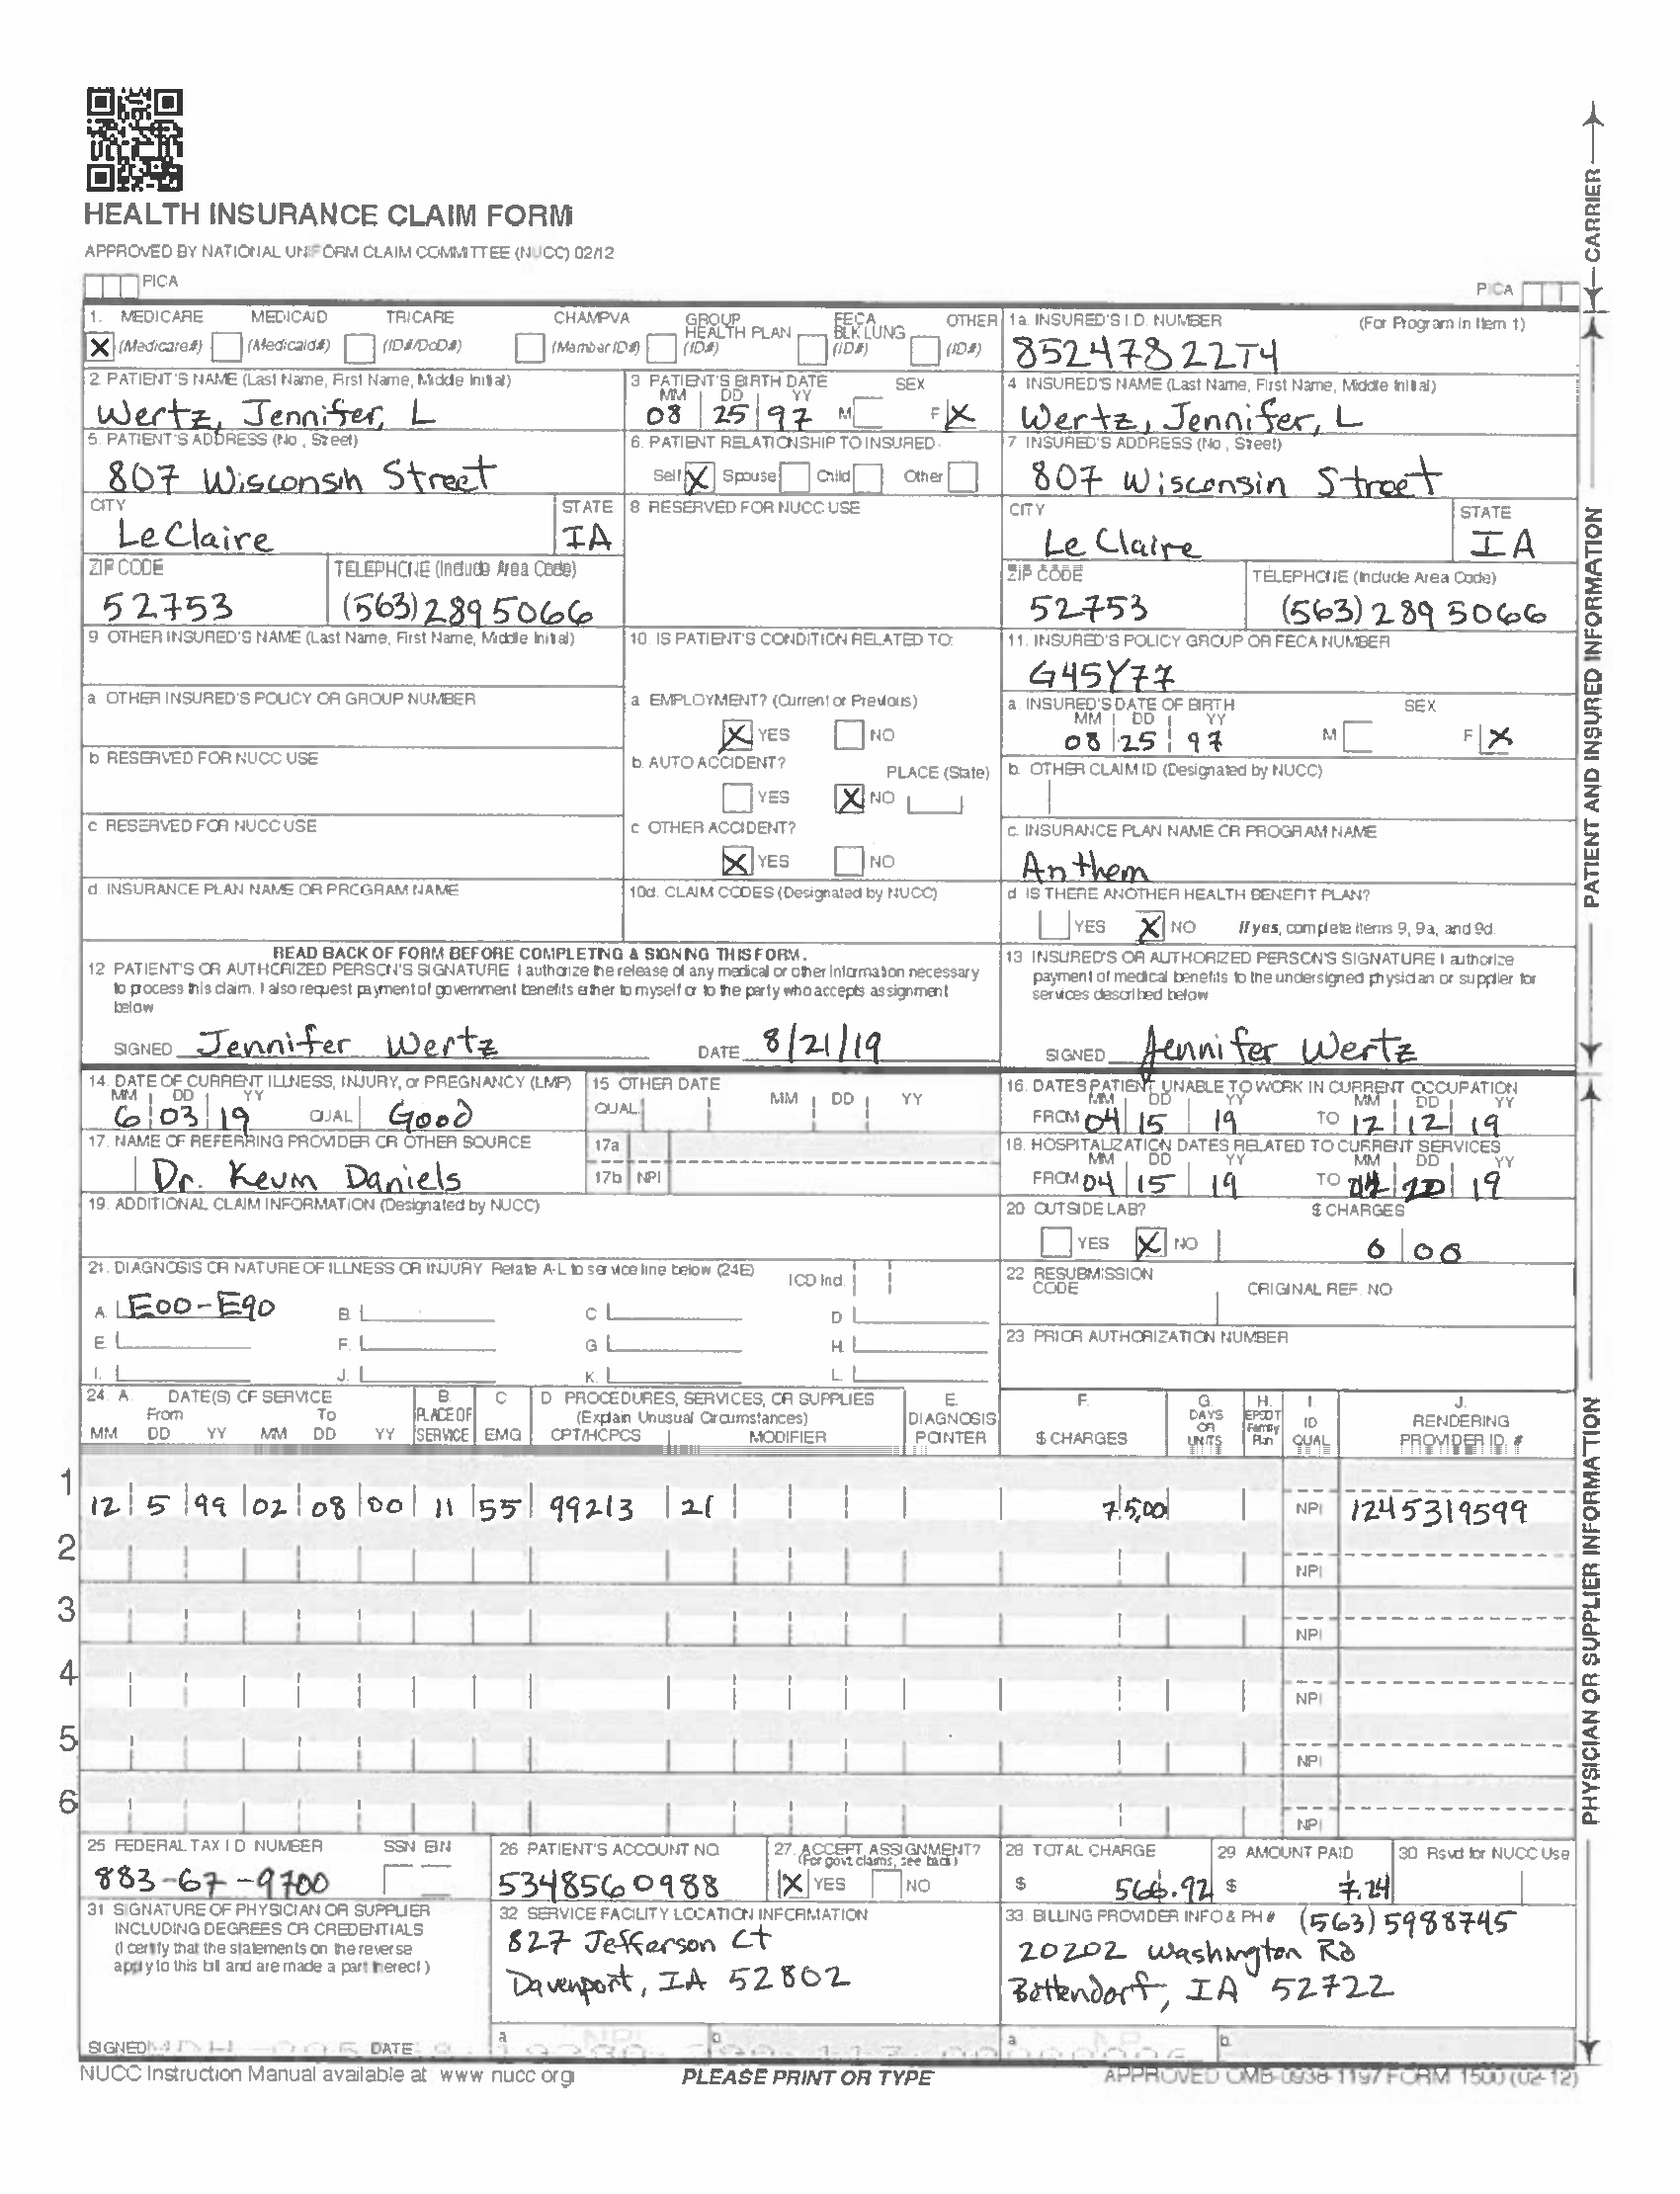 HEALTH INSURANCE CLAIM FORM
APPROVED BY NATIONAL UNIFORM CLAIM COMMITTEE (NUCC) 02/12
PICA
PICA
CARRIER
1. MEDICARE MEDICAID TRICARE CHAMPVA GROUP HEALTH PLAN FECA BLK LUNG OTHER
X (Medicare#) (Medicaid#) (ID#/DoD#) (Member ID#) (ID#) (ID#) (ID#)
1a. INSURED'S I.D. NUMBER (For Program in Item 1)
85247822T4
2. PATIENT'S NAME (Last Name, First Name, Middle Initial)
Wertz, Jennifer, L
3 PATIENT'S BIRTH DATE SEX
MM DD YY
08 25 97 M F X
4 INSURED'S NAME (Last Name, First Name, Middle Initial)
Wertz, Jennifer, L
5. PATIENT'S ADDRESS (No, Street)
807 Wisconsin Street
6. PATIENT RELATIONSHIP TO INSURED
Self X Spouse Child Other
7 INSURED'S ADDRESS (No, Street)
807 Wisconsin Street
CITY STATE
LeClaire IA
8 RESERVED FOR NUCC USE
CITY STATE
Le Claire IA
ZIP CODE TELEPHONE (Include Area Code)
52753 (563) 289 5066
ZIP CODE TELEPHONE (Include Area Code)
52753 (563) 289 5066
9 OTHER INSURED'S NAME (Last Name, First Name, Middle Initial)
10. IS PATIENT'S CONDITION RELATED TO:
11. INSURED'S POLICY GROUP OR FECA NUMBER
G45Y77
a OTHER INSURED'S POLICY OR GROUP NUMBER
a EMPLOYMENT? (Current or Previous)
X YES NO
a. INSURED'S DATE OF BIRTH SEX
MM DD YY
08 25 97 M F X
b RESERVED FOR NUCC USE
b. AUTO ACCIDENT? PLACE (State)
YES X NO
b. OTHER CLAIM ID (Designated by NUCC)
c RESERVED FOR NUCC USE
c OTHER ACCIDENT?
X YES NO
c. INSURANCE PLAN NAME OR PROGRAM NAME
Anthem
d. INSURANCE PLAN NAME OR PROGRAM NAME
10d. CLAIM CODES (Designated by NUCC)
d IS THERE ANOTHER HEALTH BENEFIT PLAN?
YES X NO If yes, complete items 9, 9a, and 9d.
READ BACK OF FORM BEFORE COMPLETING & SIGNING THIS FORM.
12 PATIENT'S OR AUTHORIZED PERSON'S SIGNATURE I authorize the release of any medical or other information necessary
to process this claim. I also request payment of government benefits either to myself or to the party who accepts assignment
below
SIGNED Jennifer Wertz DATE 8/21/19
13 INSURED'S OR AUTHORIZED PERSON'S SIGNATURE I authorize
payment of medical benefits to the undersigned physician or supplier for
services described below
SIGNED Jennifer Wertz
PATIENT AND INSURED INFORMATION
14. DATE OF CURRENT ILLNESS, INJURY, or PREGNANCY (LMP)
MM DD YY
6 03 19 QUAL Good
15 OTHER DATE
QUAL MM DD YY
16. DATES PATIENT UNABLE TO WORK IN CURRENT OCCUPATION
MM DD YY MM DD YY
FROM 04 15 19 TO 12 12 19
17. NAME OF REFERRING PROVIDER OR OTHER SOURCE
Dr. Kevin Daniels
17a
17b NPI
18. HOSPITALIZATION DATES RELATED TO CURRENT SERVICES
MM DD YY MM DD YY
FROM 04 15 19 TO 20 19
19. ADDITIONAL CLAIM INFORMATION (Designated by NUCC)
20 OUTSIDE LAB? $ CHARGES
YES X NO 0 00
21. DIAGNOSIS OR NATURE OF ILLNESS OR INJURY Relate A-L to service line below (24E) ICD Ind.
A. E00-E90 B. C D
E. F. G H.
I. J. K. L.
22 RESUBMISSION CODE ORIGINAL REF. NO
23 PRIOR AUTHORIZATION NUMBER
24. A. DATE(S) OF SERVICE B. C D PROCEDURES, SERVICES, OR SUPPLIES E. F. G. H. I. J.
From To PLACE OF (Explain Unusual Circumstances) DIAGNOSIS DAYS OR EPSDT Family ID RENDERING
MM DD YY MM DD YY SERVICE EMG CPT/HCPCS MODIFIER POINTER $ CHARGES UNITS Plan QUAL PROVIDER ID. #
1
12 5 99 02 08 00 11 55 99213 21 75,00 NPI 1245319599
2
NPI
3
NPI
4
NPI
5
NPI
6
NPI
PHYSICIAN OR SUPPLIER INFORMATION
25 FEDERAL TAX I D NUMBER SSN EIN
883-67-9700
26 PATIENT'S ACCOUNT NO.
5348560988
27. ACCEPT ASSIGNMENT?
(For govt claims, see back)
X YES NO
28 TOTAL CHARGE
$ 566.92
29 AMOUNT PAID
$ 7.24
30 Rsvd for NUCC Use
31 SIGNATURE OF PHYSICIAN OR SUPPLIER
INCLUDING DEGREES OR CREDENTIALS
(I certify that the statements on the reverse
apply to this bill and are made a part thereof)
SIGNED DATE
32 SERVICE FACILITY LOCATION INFORMATION
827 Jefferson Ct
Davenport, IA 52802
a b
33. BILLING PROVIDER INFO & PH # (563) 5988745
20202 Washington Rd
Bettendorf, IA 52722
a b
NUCC Instruction Manual available at www nucc org
PLEASE PRINT OR TYPE
APPROVED OMB-0938-1197 FORM 1500 (02-12)